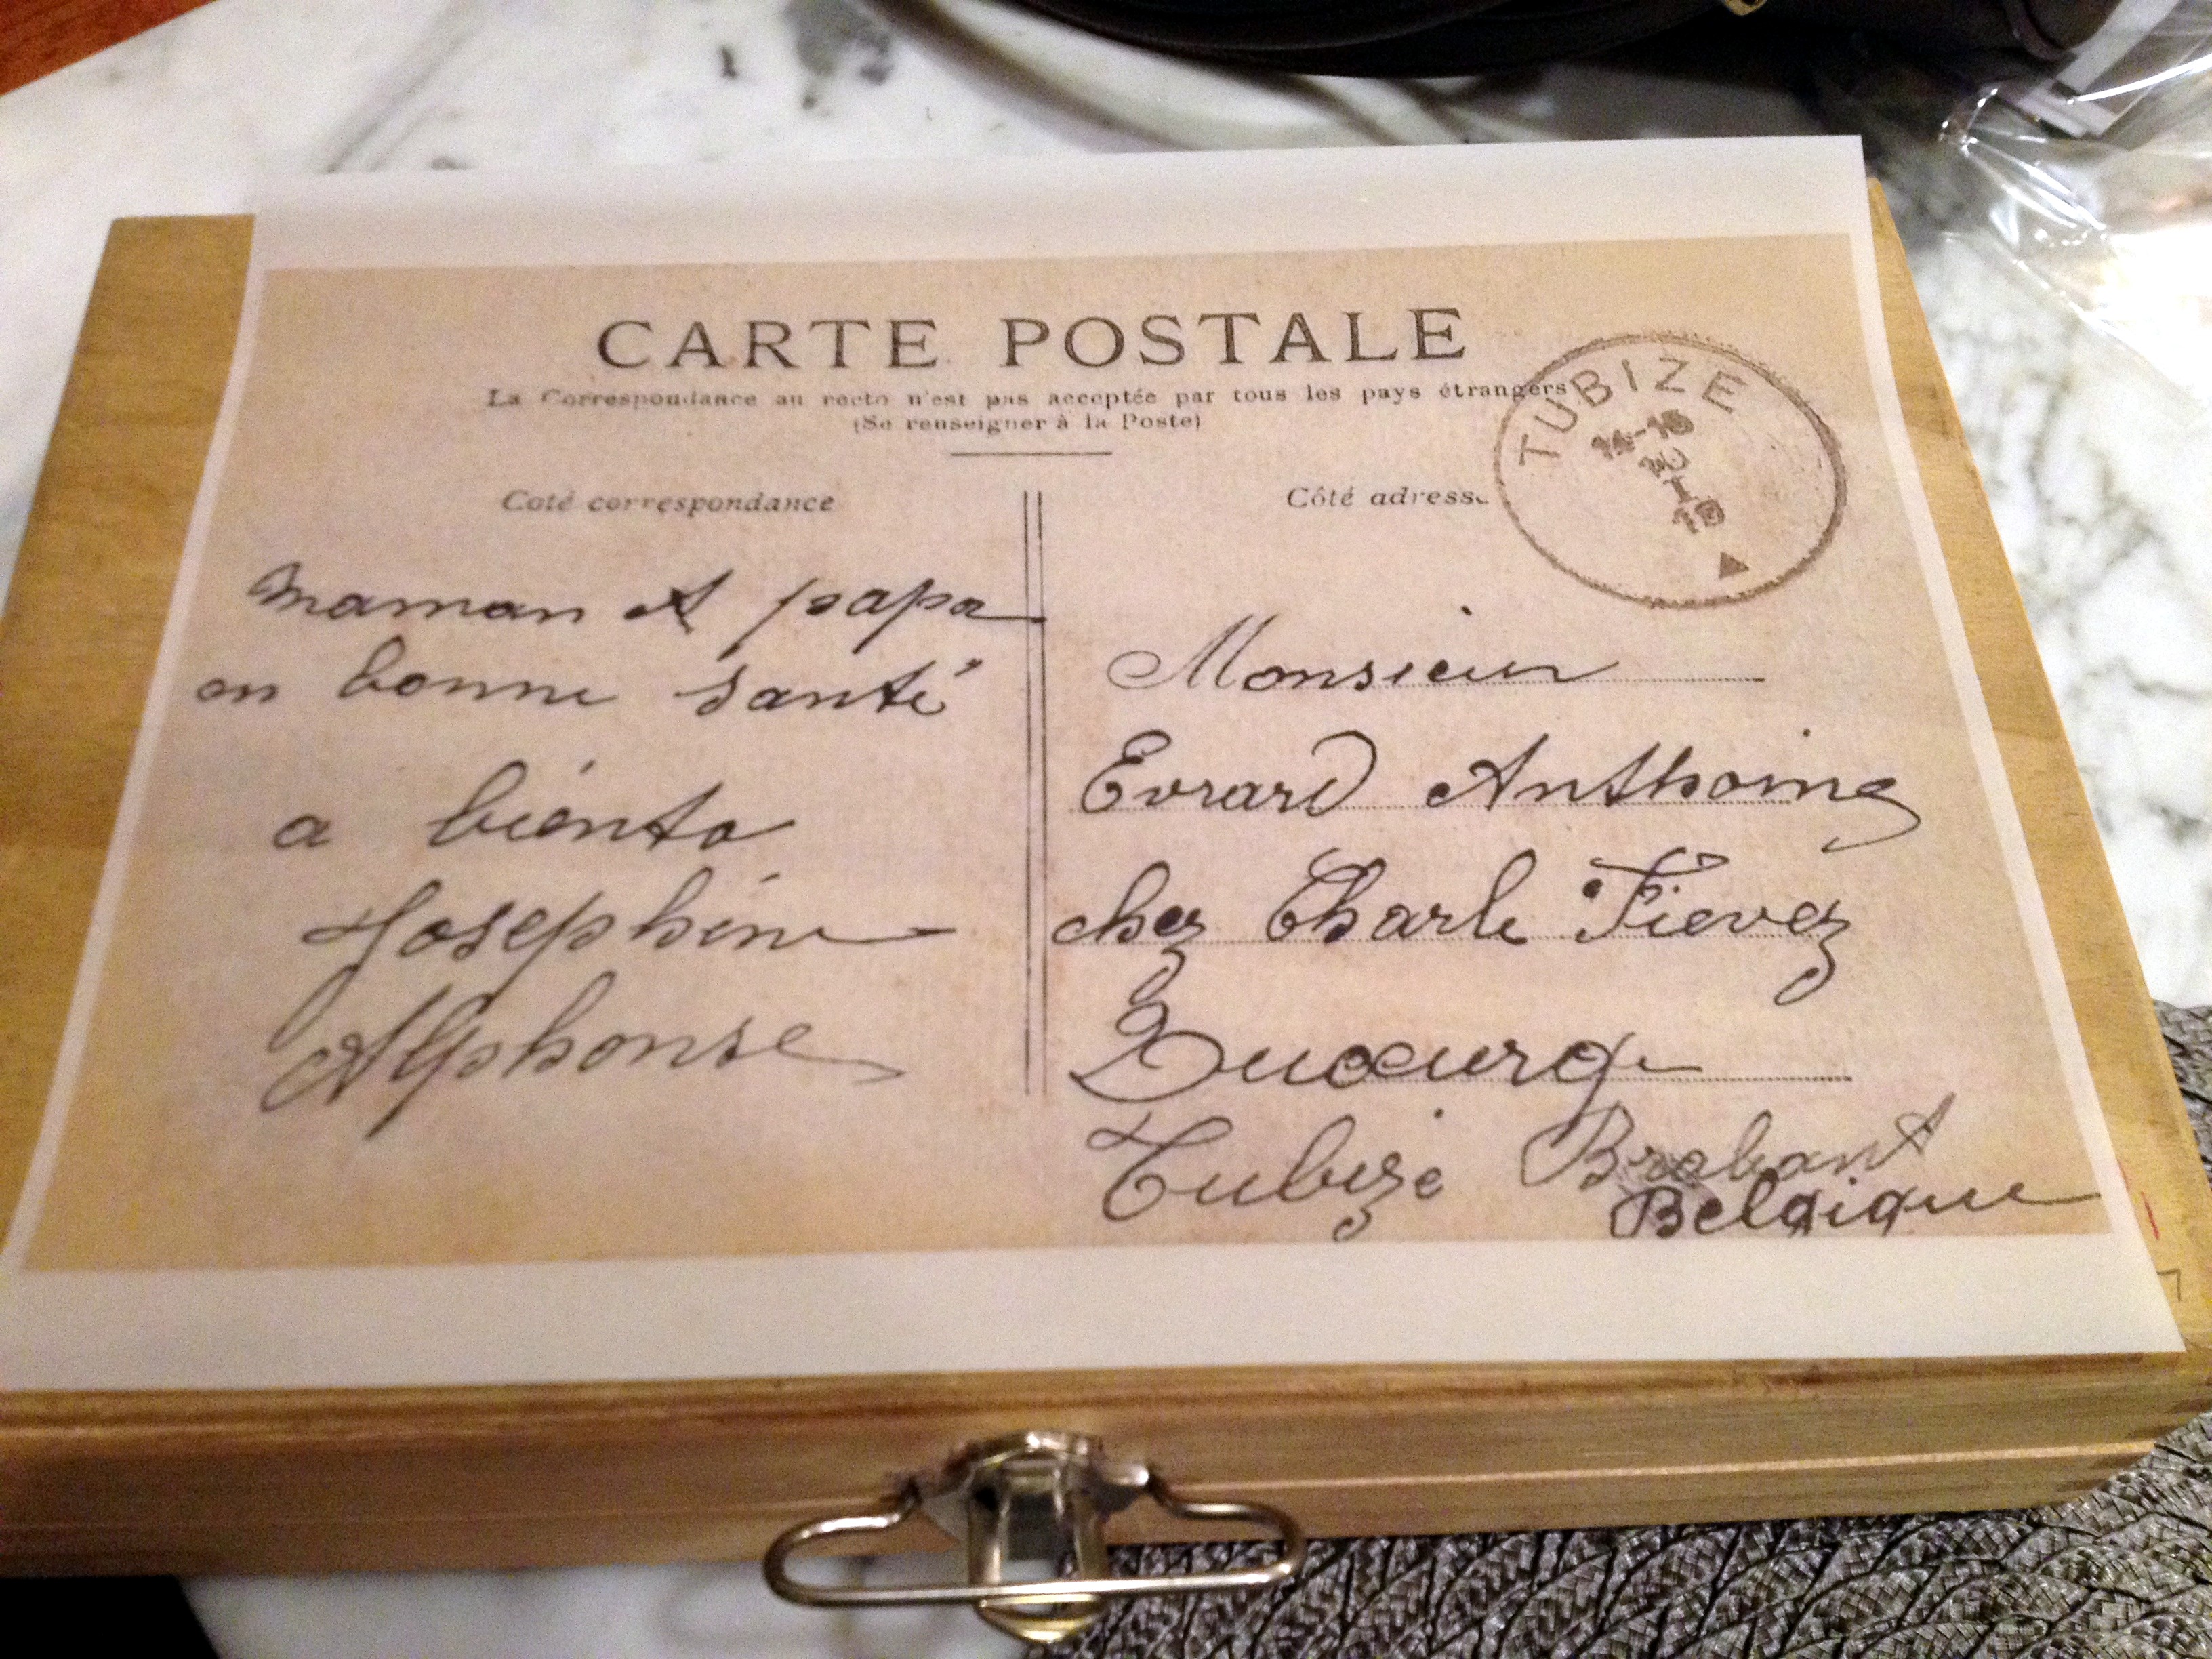 CARTE POSTALE
La Correspondance au recto n'est pas acceptée par tous les pays étrangers
(Se renseigner à la Poste)
Coté correspondance
maman et papa
en bonne santé
a biento
Josephine
Alphonse
Côté adresse
TUBIZE
Monsieur
Evrard Anthoine
chez Charle Fievez
Tubize Brabant
Belgique